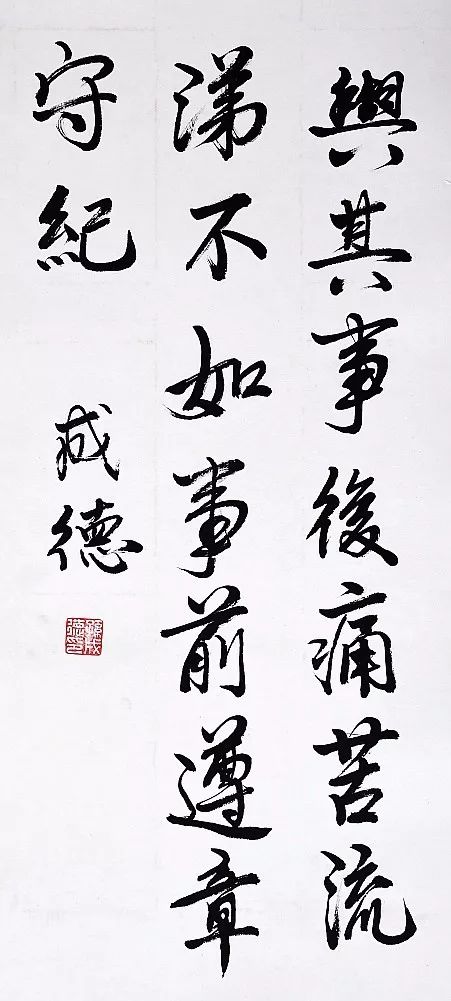 與其事後痛苦流
涕不如事前遵章
守紀
成德